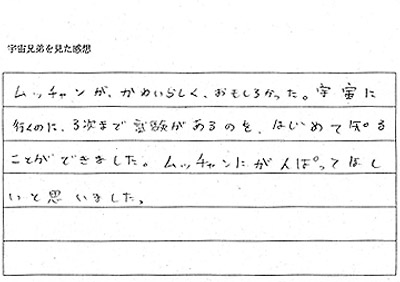 宇宙兄弟を見た感想
ムッチャンが、かわいらしく、おもしろかった。宇宙に
行くのに、3次まで試験があるのを、はじめて知る
ことができました。ムッチャンにがんばってほし
いと思いました。